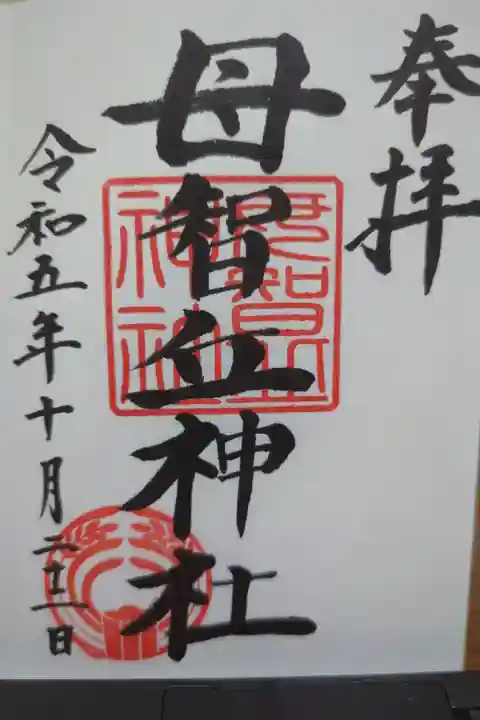 奉拝
母智丘神社
母智丘神社
令和五年十月二十一日